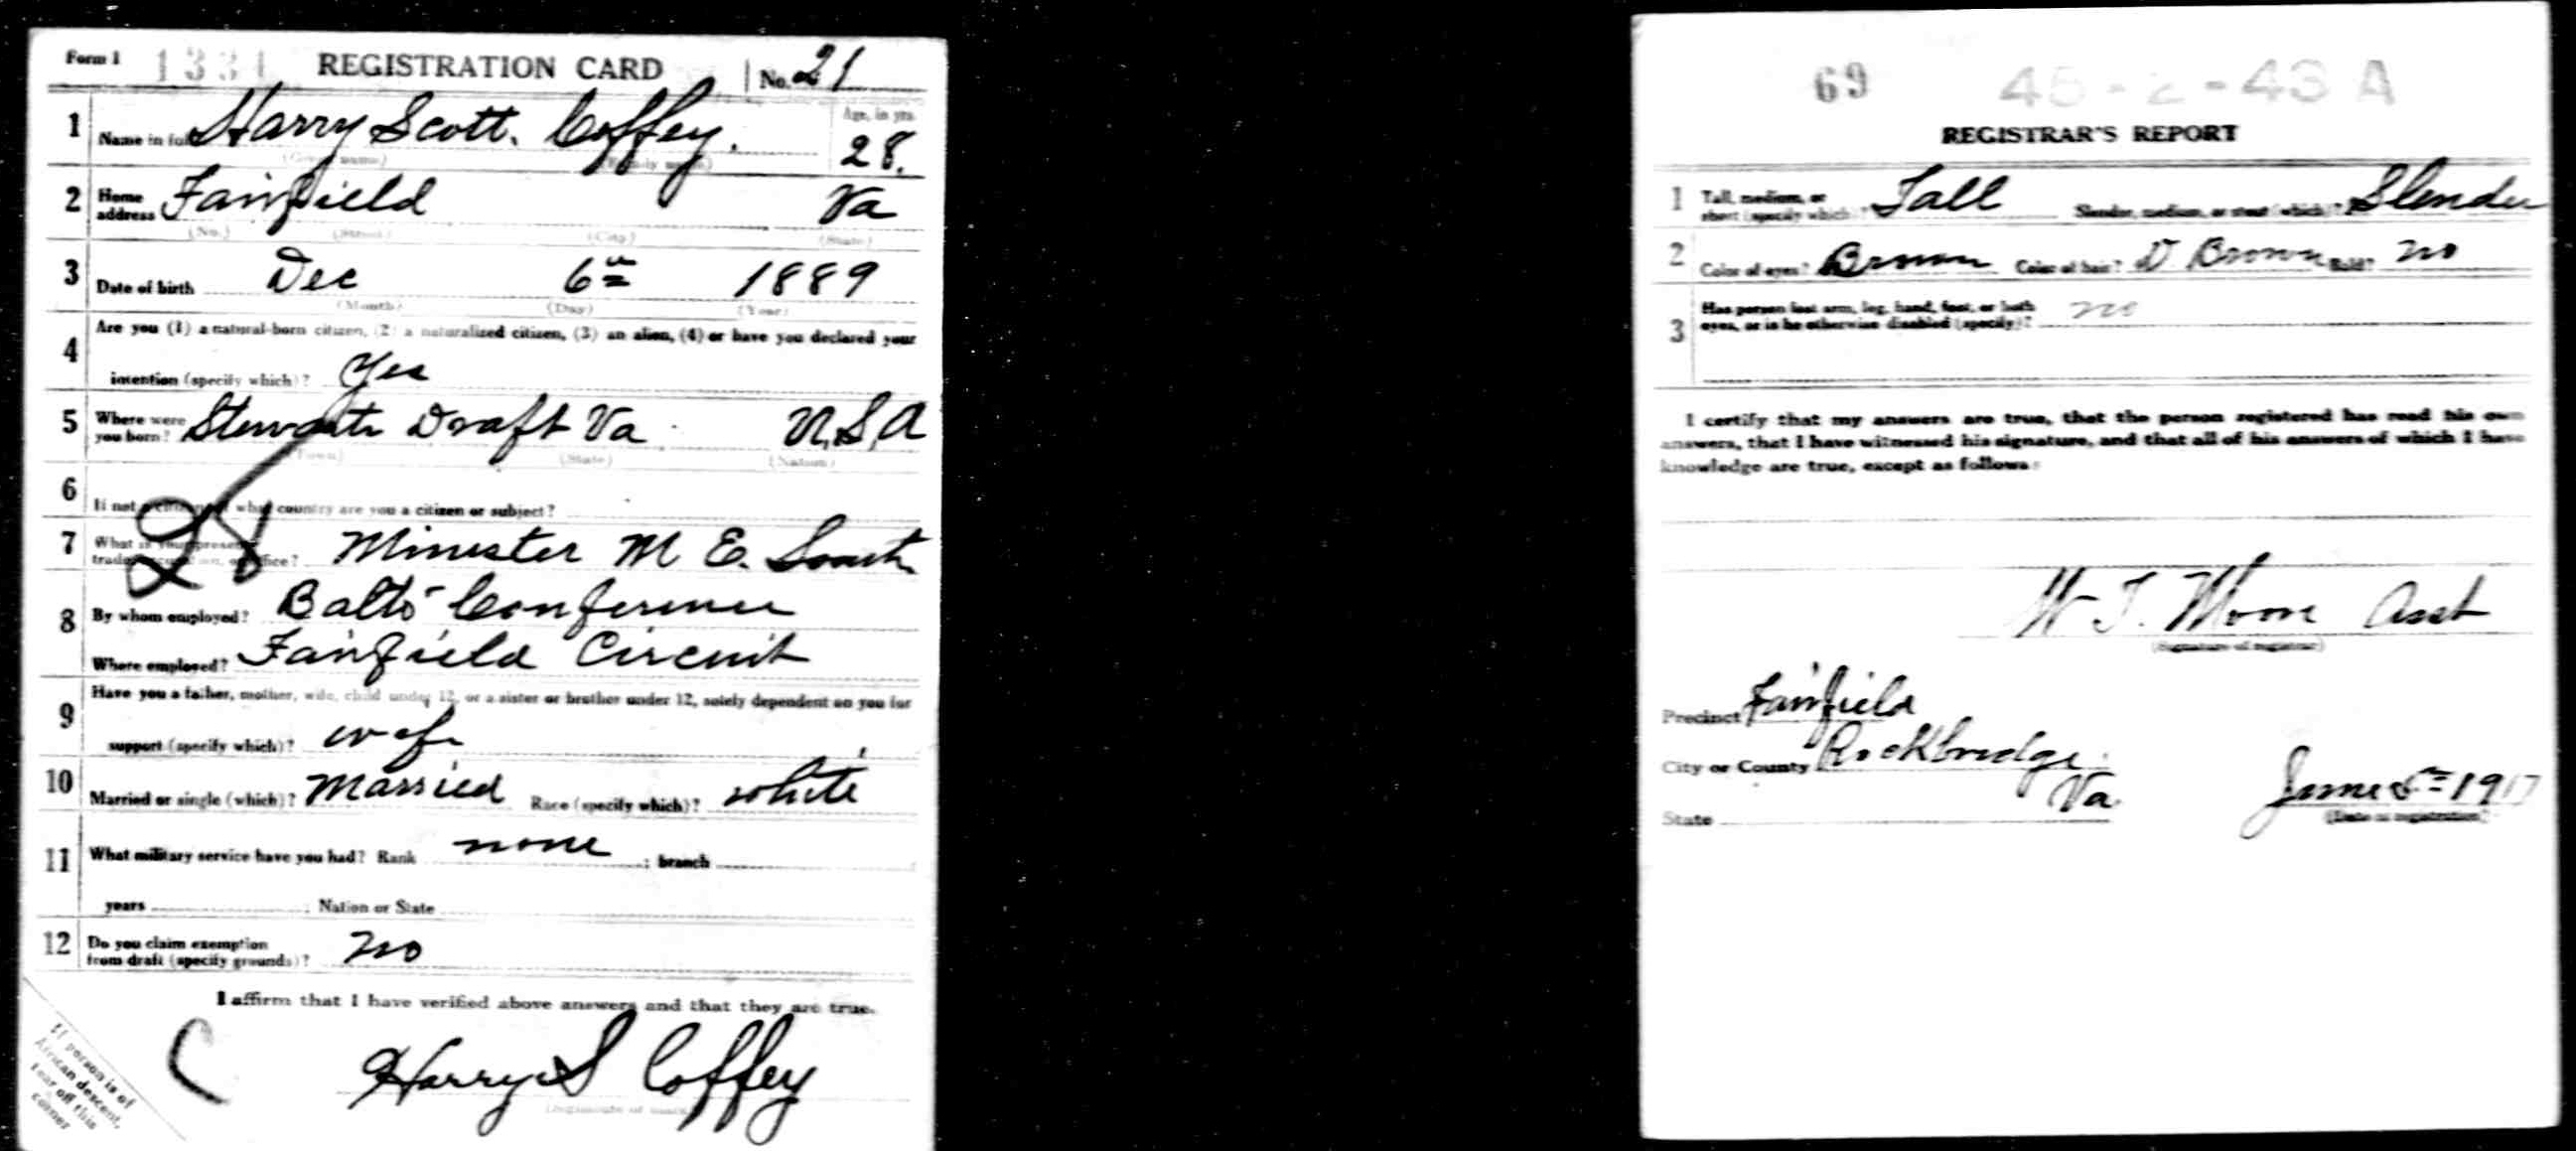 Form 1 1331 REGISTRATION CARD No. 21
1 Name in full Harry Scott. Coffey. Age, in yrs. 28.
(Given name) (Family name)
2 Home address Fairfield Va
(No.) (Street) (City) (State)
3 Date of birth Dec 6th 1889
(Month) (Day) (Year)
4 Are you (1) a natural-born citizen, (2) a naturalized citizen, (3) an alien, (4) or have you declared your
intention (specify which)? Yes
5 Where were you born? Stewarts Draft Va U.S.A
(Town) (State) (Nation)
6 If not a citizen, of what country are you a citizen or subject?
28
7 What is your present trade, occupation, or office? Minister M E. South
8 By whom employed? Balto Conference
Where employed? Fairfield Circuit
9 Have you a father, mother, wife, child under 12, or a sister or brother under 12, solely dependent on you for
support (specify which)? wife
10 Married or single (which)? Married Race (specify which)? white
11 What military service have you had? Rank none ; branch
years ; Nation or State
12 Do you claim exemption from draft (specify grounds)? no
I affirm that I have verified above answers and that they are true.
C
Harry S Coffey
If person is of
African descent,
tear off this
corner
69 45-2-43 A
REGISTRAR'S REPORT
1 Tall, medium, or short (specify which)? Tall Slender, medium, or stout (which)? Slender
2 Color of eyes? Brown Color of hair? D Brown Bald? no
3 Has person lost arm, leg, hand, foot, or both
eyes, or is he otherwise disabled (specify)? no
I certify that my answers are true, that the person registered has read his own
answers, that I have witnessed his signature, and that all of his answers of which I have
knowledge are true, except as follows:
W T. Moore Asst
(Signature of registrar)
Precinct Fairfield
City or County Rockbridge.
State Va June 5th 1917
(Date of registration)